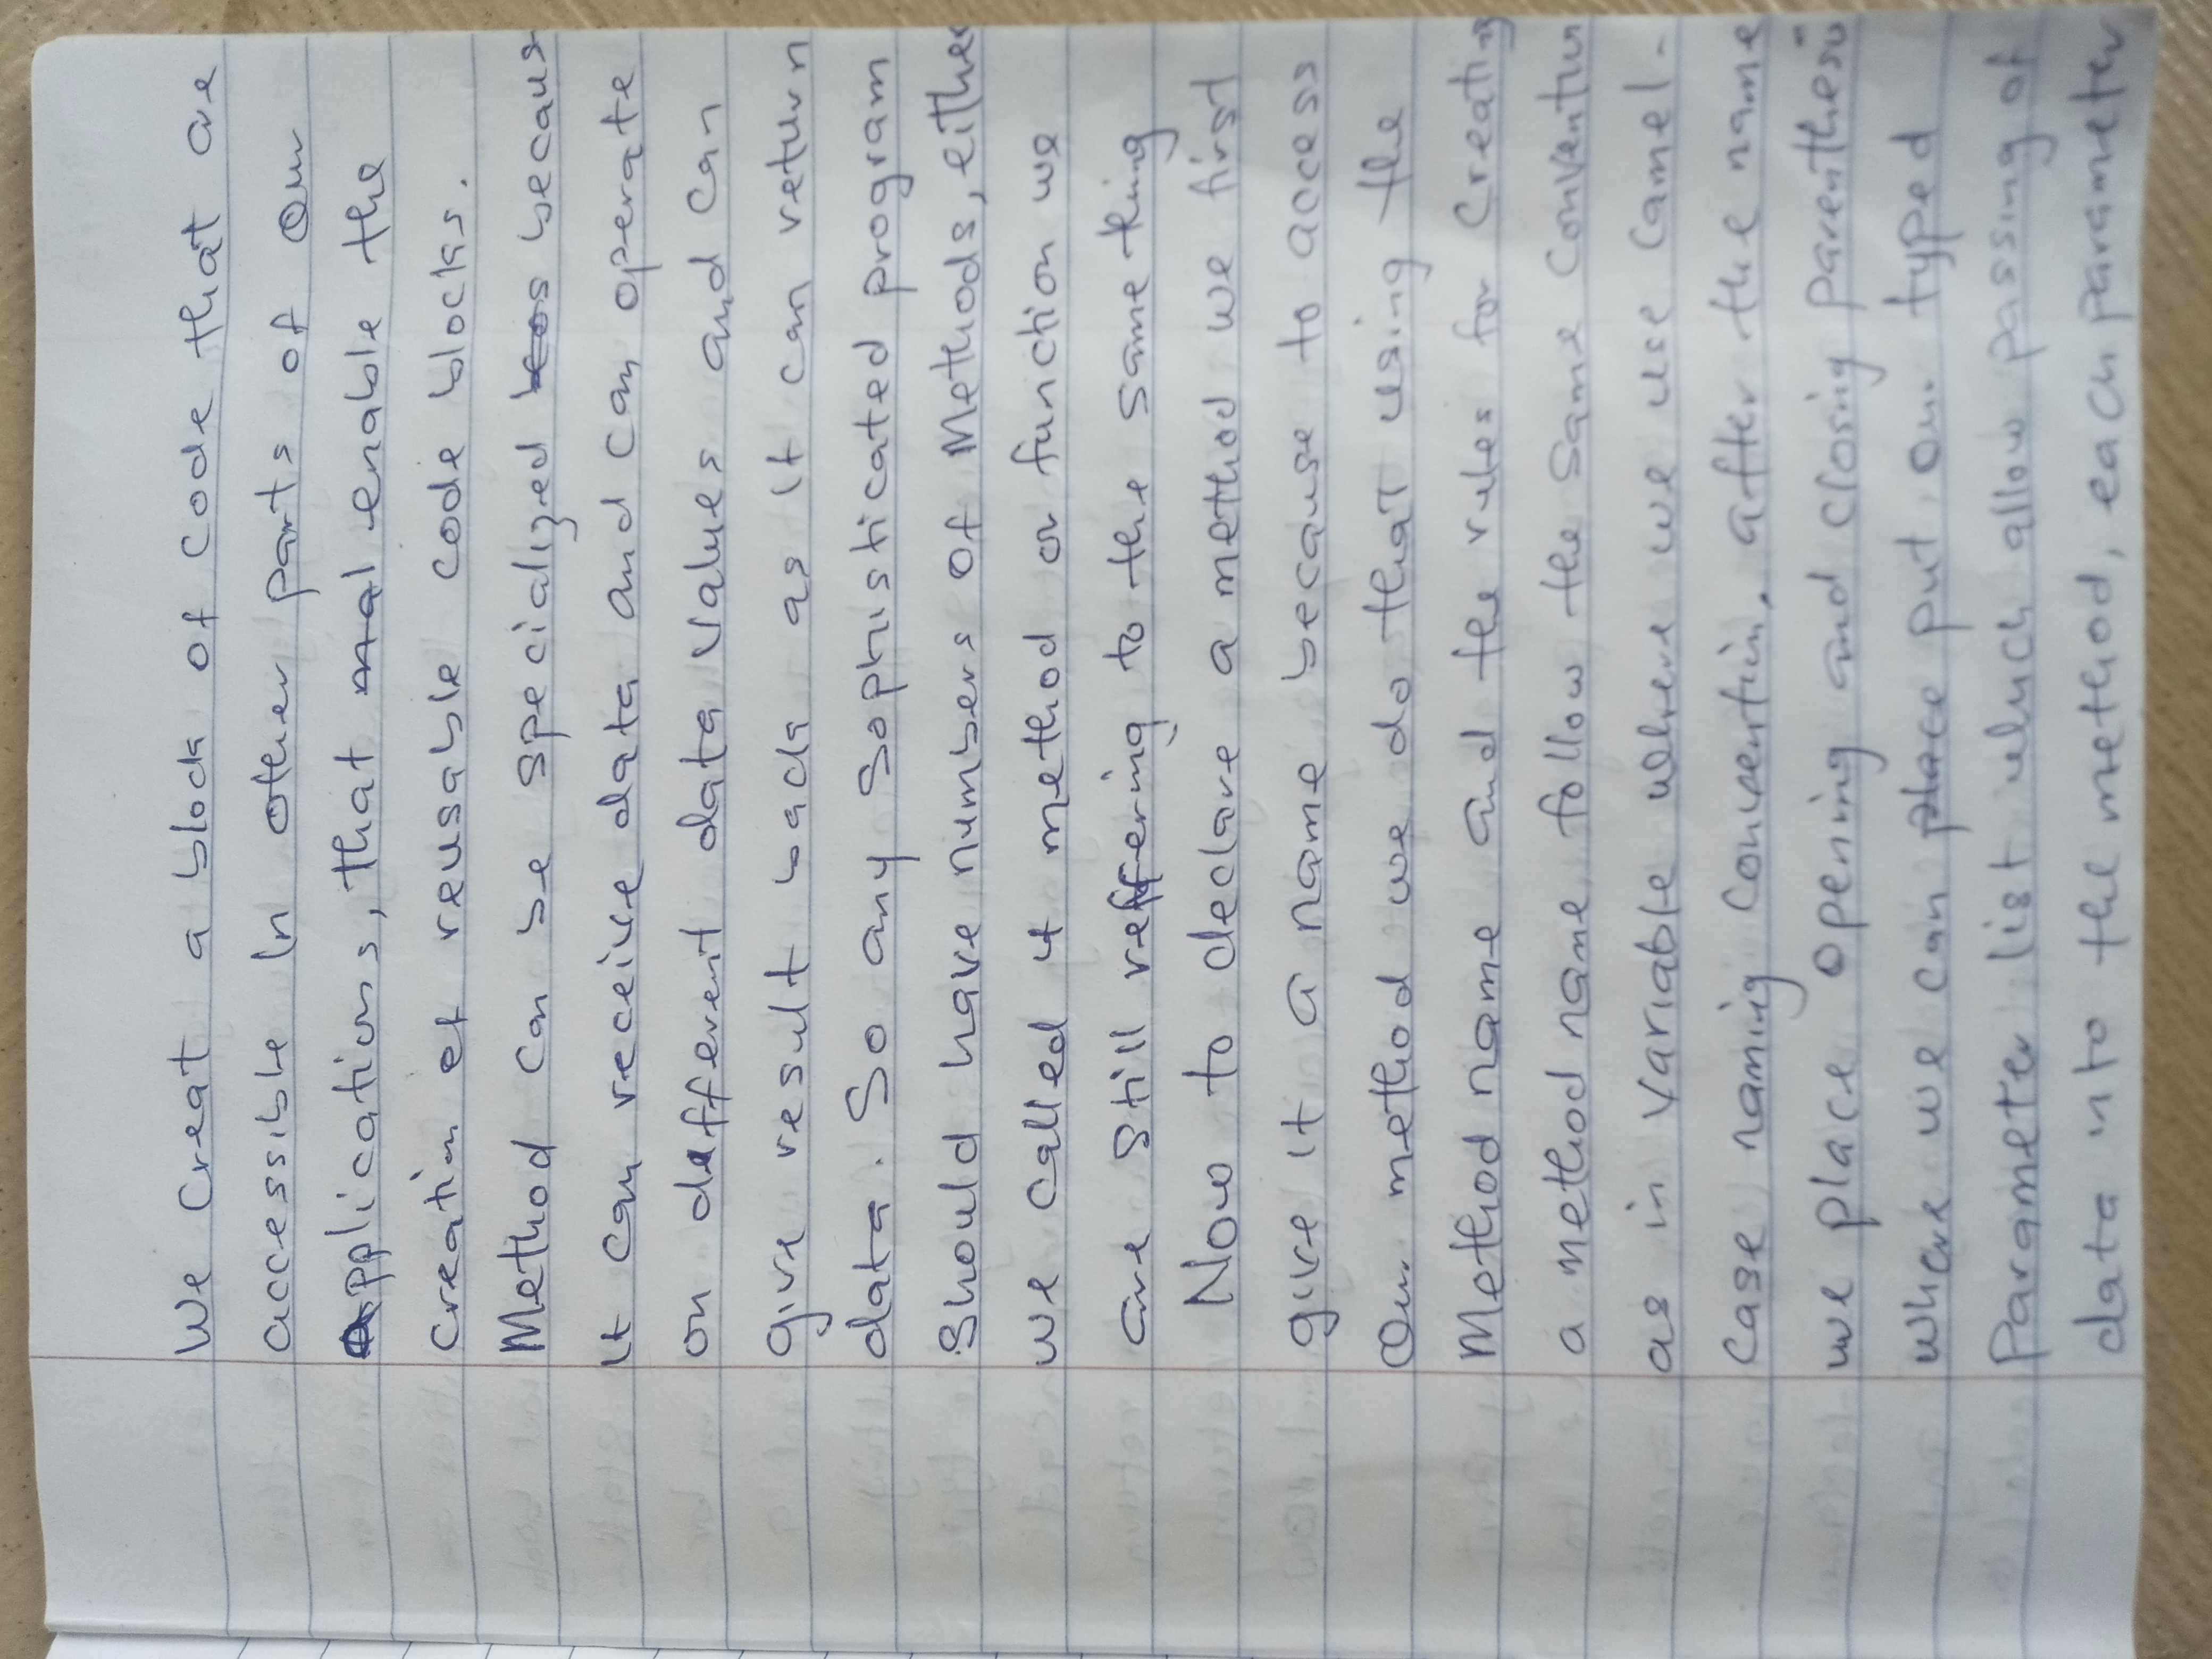 We Creat a block of Code that are
accessible In other parts of Our
Applications, that enable the
creation of reusable code blocks.
Method can be specialized becaus
It can receive data and can operate
on different data values and can
give result back as It can return
data. So any sophisticated program
Should have numbers of Methods, either
we called it method or function we
are still reffering to the same thing
Now to declare a method we first
give It a name because to access
Our method we do that using the
Method name and the rules for Creating
a method name follow the same Conventin
as in variable where we use Camel-
Case naming Conventin, after the name
we place opening and closing parenthesis
where we can put our typed
Parameter list which allow passing of
data into the method, each parameter